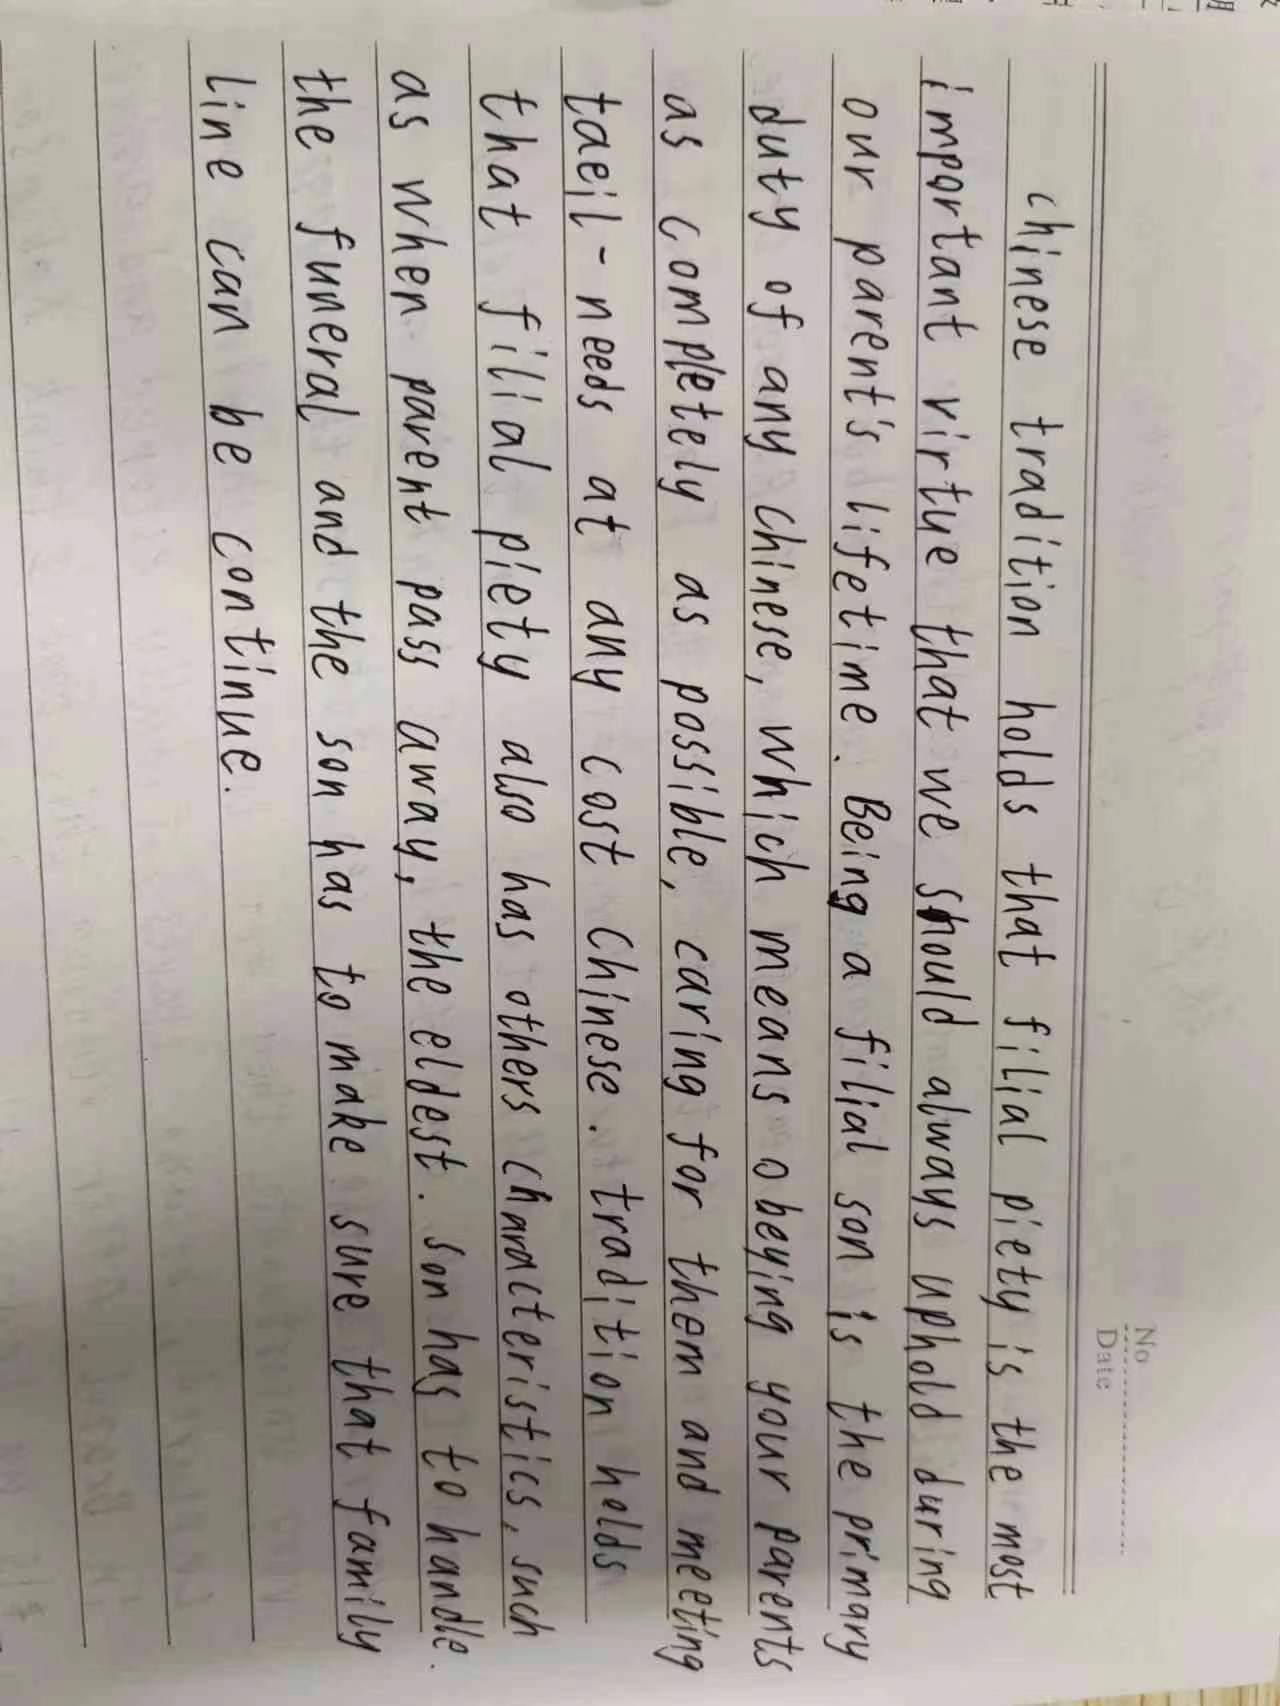 No
Date
chinese tradition holds that filial piety is the most
important virtue that we should always uphold during
our parent's lifetime. Being a filial son is the primary
duty of any chinese, which means obeying your parents
as completely as possible, caring for them and meeting
taeil-needs at any cost Chinese. tradition holds
that filial piety also has others characteristics, such
as when parent pass away, the eldest. son has to handle.
the funeral and the son has to make sure that family
line can be continue.